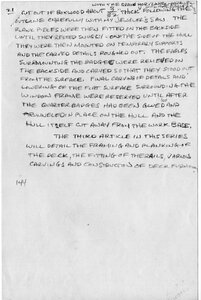 WITH THE
21 CUT OUT OF BOXWOOD ABOUT 3/32" THICK FOLLOWING THE
OUTLINE CAREFULLY WITH MY JEWELER'S SAW. THE
WERE THEN FITTED IN THE BACKSIDE
UNTIL THEY RESTED AGAINST THE SIDE OF THE HULL
THEY WERE THEN MOUNTED ON TEMPORARY SUPPORTS
AND THE CARVED DETAILS ROUGHED OUT. THE FIGURES
SURMOUNTING THE BADGES WERE RELIEVED IN
THE BACKSIDE AND CARVED SO THAT THEY STOOD OUT
FROM THE SURFACE. FINAL CARVING OF DETAILS AND
LOWERING OF THE FLAT SURFACE SURROUNDING THE
WINDOW FRAME WERE RESERVED UNTIL AFTER
THE QUARTER BADGES HAD BEEN GLUED AND
IN PLACE ON THE HULL AND THE
HULL ITSELF CUT AWAY FROM THE WORK BASE.
THE THIRD ARTICLE IN THIS SERIES
WILL DETAIL THE FRAMING AND PLANKING OF
THE DECK, THE FITTING OF THE RAILS, VARIOUS
CARVINGS AND CONSTRUCTION OF DECK